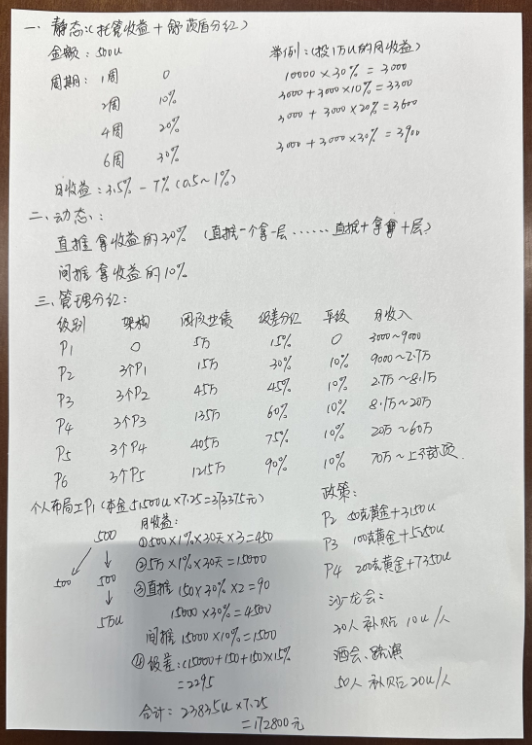 一、静态:(托管收益 + 舒茨盾分红)
金额:500u
举例:(投1万U的月收益)
周期:1周 0
10000 × 30% = 3000
2周 10%
3000 + 3000 × 10% = 3300
4周 20%
3000 + 3000 × 20% = 3600
6周 30%
3000 + 3000 × 30% = 3900
日收益:3.5% - 7% (0.5~1%)
二、动态:
直推 拿收益的30% (直推一个拿一层……直推十拿十层)
间推 拿收益的10%
三、管理分红:
级别 架构 团队业绩 级差分红 平级 月收入
P1 0 5万 15% 0 3000~9000
P2 3个P1 15万 30% 10% 9000~2.7万
P3 3个P2 45万 45% 10% 2.7万~8.1万
P4 3个P3 135万 60% 10% 8.1万~20万
P5 3个P4 405万 75% 10% 20万~60万
P6 3个P5 1215万 90% 10% 70万~上不封顶.
个人布局工P1 (本金51500u×7.25=373375元)
500
500 500
5万u
月收益:
①500×1%×30天×3=450
②5万×1%×30天=15000
③直推 150×30%×2=90
15000×30%=4500
间推 15000×10%=1500
④级差:(15000+150+150)×15%
=2295
合计:23835u×7.25
=172800元
政策:
P2 50克黄金+3150u
P3 100克黄金+5250u
P4 200克黄金+7350u
沙龙会:
30人 补贴 10u/人
酒会、路演
50人 补贴 20u/人